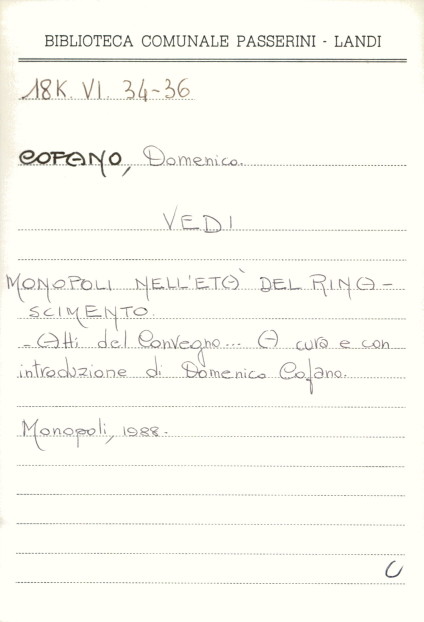 BIBLIOTECA COMUNALE PASSERINI - LANDI
18K. VI. 34-36
COFANO, Domenico.
VEDI
MONOPOLI NELL'ETA' DEL RINA-
SCIMENTO.
- Atti del Convegno... A cura e con
introduzione di Domenico Cofano.
Monopoli, 1988.
C